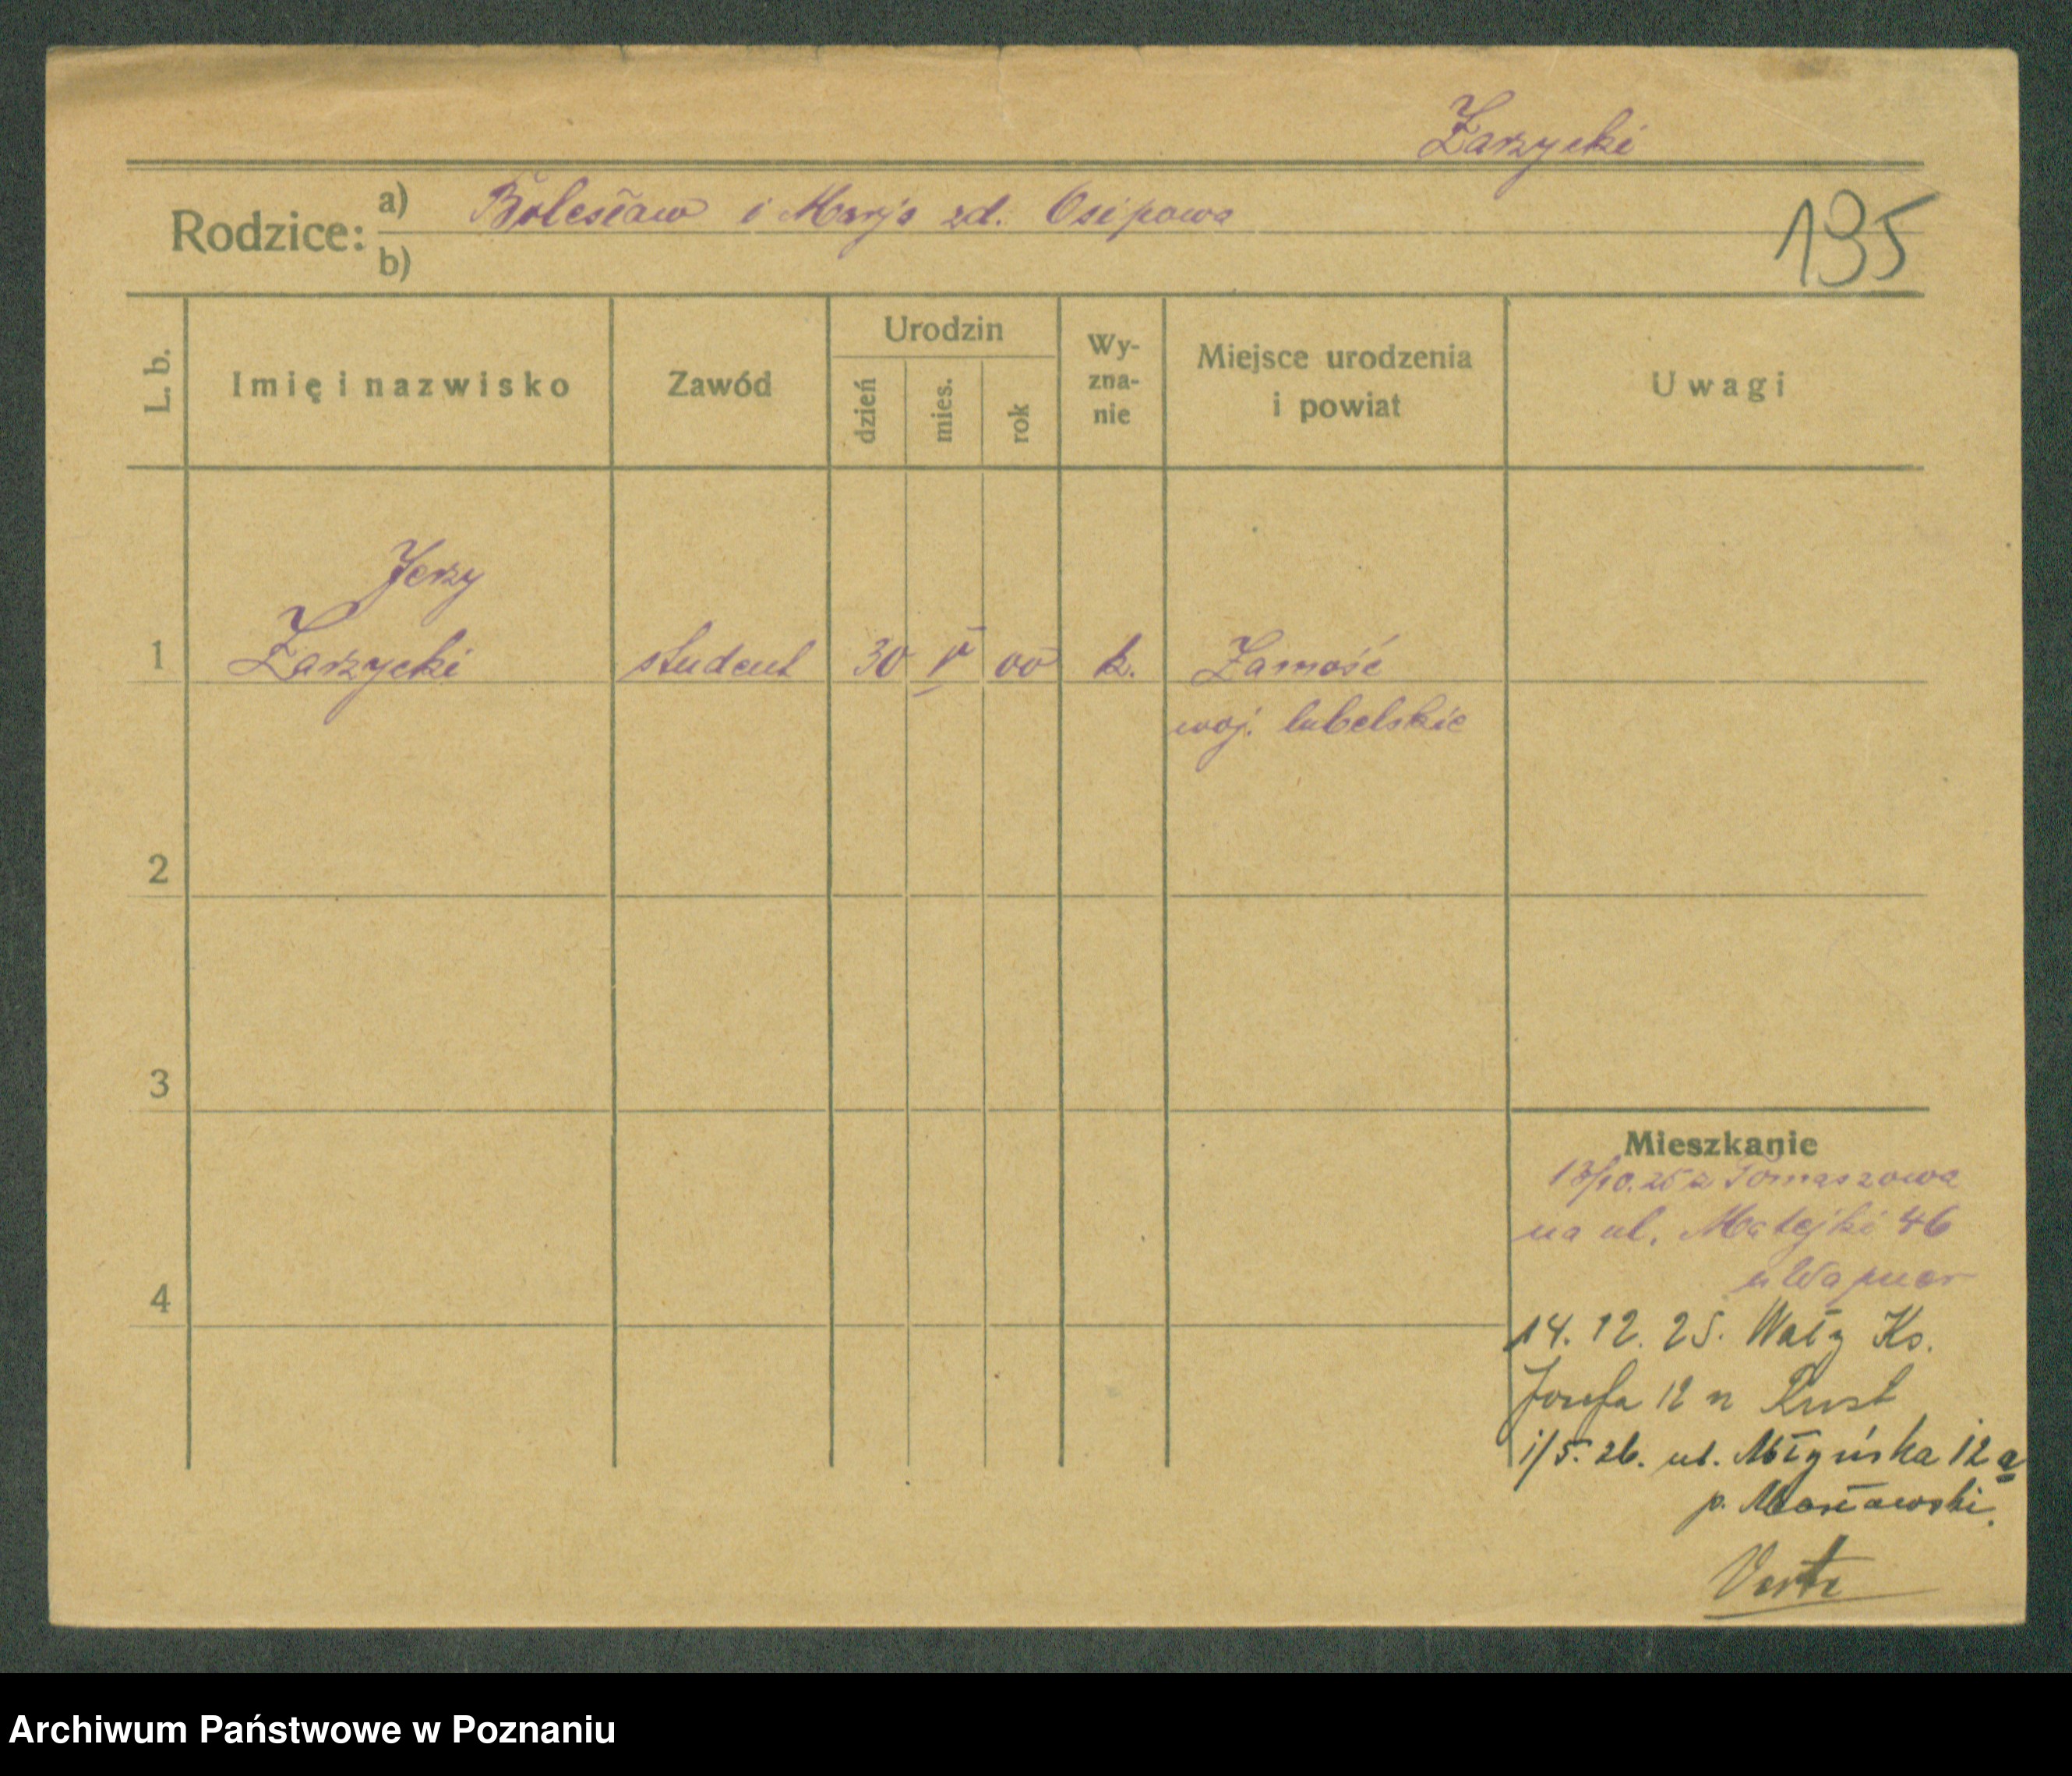 Zarzycki
Rodzice: a) Bolesław i Marja zd. Osipowa
b)
195
L. b. Imię i nazwisko Zawód Urodzin dzień mies. rok Wy-zna-nie Miejsce urodzenia i powiat Uwagi
Jerzy
1 Zarzycki student 30 V 00 k. Zamość
woj. lubelskie
2
3
Mieszkanie
13/10.25 z Tomaszowa
na ul. Matejki 46
u Wapner
4
14. 12. 25. Wały Ks.
Józefa 12 u Rust
1/5. 26. ul. Młyńska 12a
p.
Verte
Archiwum Państwowe w Poznaniu